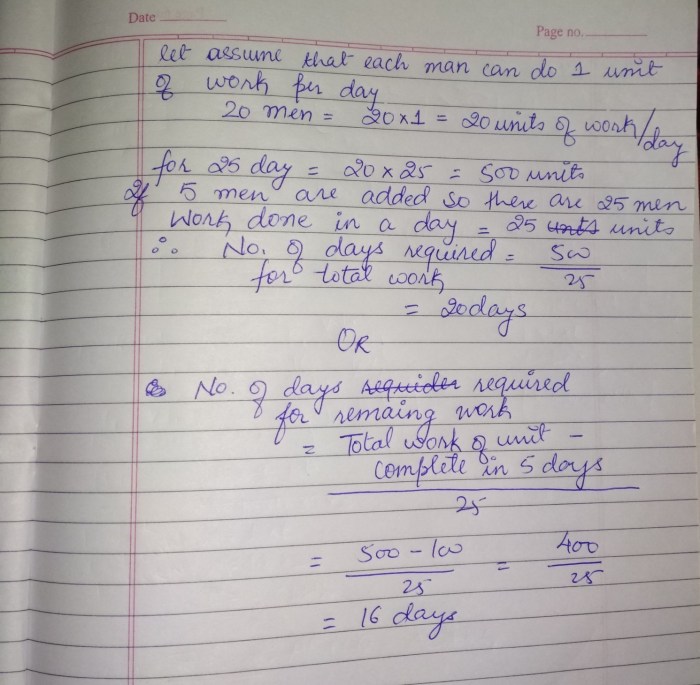 Date
Page no.
let assume that each man can do 1 unit
of work per day
20 men = 20×1 = 20 units of work/day
for 25 day = 20 × 25 = 500 units
If 5 men are added so there are 25 men
Work done in a day = 25 units units
∴ No. of days required = 500
for total work 25
= 20 days
OR
No. of days requider required
for remaing work
= Total work of unit -
complete in 5 days
25
= 500 - 100 = 400
25 25
= 16 days